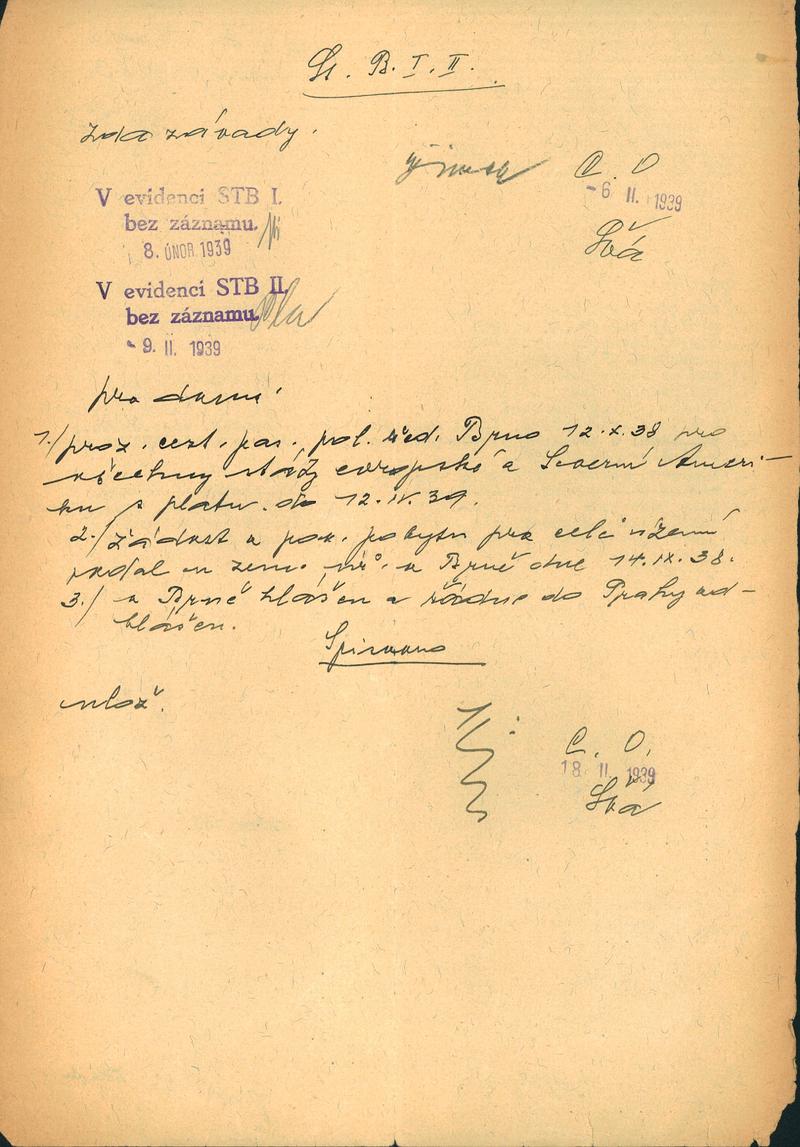 St. B. I. II.
zda závady.
C. O
- 6 II. 1939
V evidenci STB I.
bez záznamu.
8. ÚNOR 1939
V evidenci STB II.
bez záznamu.
- 9. II. 1939
1./ cest. pas. pol. řed. Brno 12.X.38 pro
všechny státy evropské a Severní Ameri-
ku s plat. do 12.IV.39.
2./ Žádost o pov. pobytu pro celé území
podal u zem. úř. v Brně dne 14.IX.38.
3./ v Brně hlášen a řádně do Prahy od-
hlášen.
Spisovna
ulož.
C. O.
18 II 1939